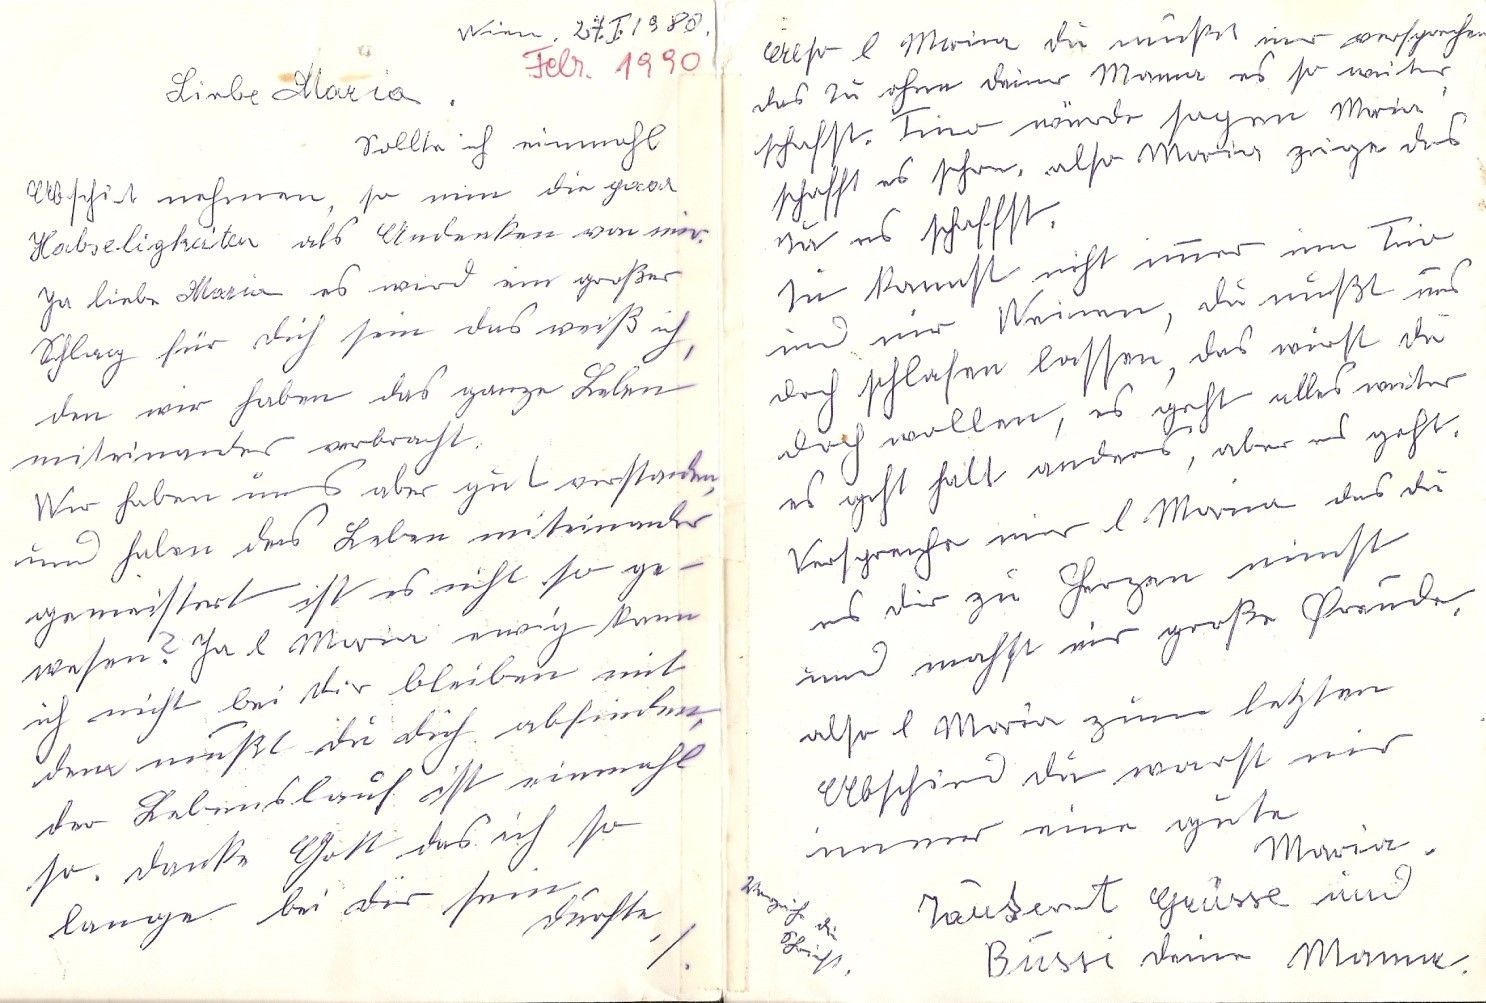 Wien, 27.I.1988.
Febr. 1990
Liebe Maria.
Sollte ich einmahl
Abschit nehmen, so nim die paar
Habseligkeiten als Andenken von mir.
Ja liebe Maria es wird ein großer
Schlag für dich sein das weiß ich,
den wir haben das ganze Leben
miteinander verbracht.
Wir haben uns aber gut verstanden,
und haben das Leben miteinander
gemeistert ist es nicht so ge-
wesen? Ja l Maria ewig kann
ich nicht bei dir bleiben mit
dem mußt du dich abfinden,
der Lebenslauf ist einmahl
so. danke Gott das ich so
lange bei dir sein
durfte, /.
Also l Maria du mußt mir versprechen
das du ohne deiner Mama es so weiter
schaffst. Tino würde sagen Maria
schafft es schon, also Maria zeige das
du es schaffst.
Du kannst nicht immer um Tino
und mir Weinen, du mußt uns
doch schlafen lassen, das wirst du
doch wollen, es geht alles weiter
es geht halt anders, aber es geht.
Verspreche mir l Maria das du
es dir zu Herzen nimst
und machst mir große Freude,
also l Maria zum letzten
Abschied du warst mir
immer eine gute
Maria.
Tausent Grüsse und
Bussi deine Mama.
Verzeihe die
Schrift.